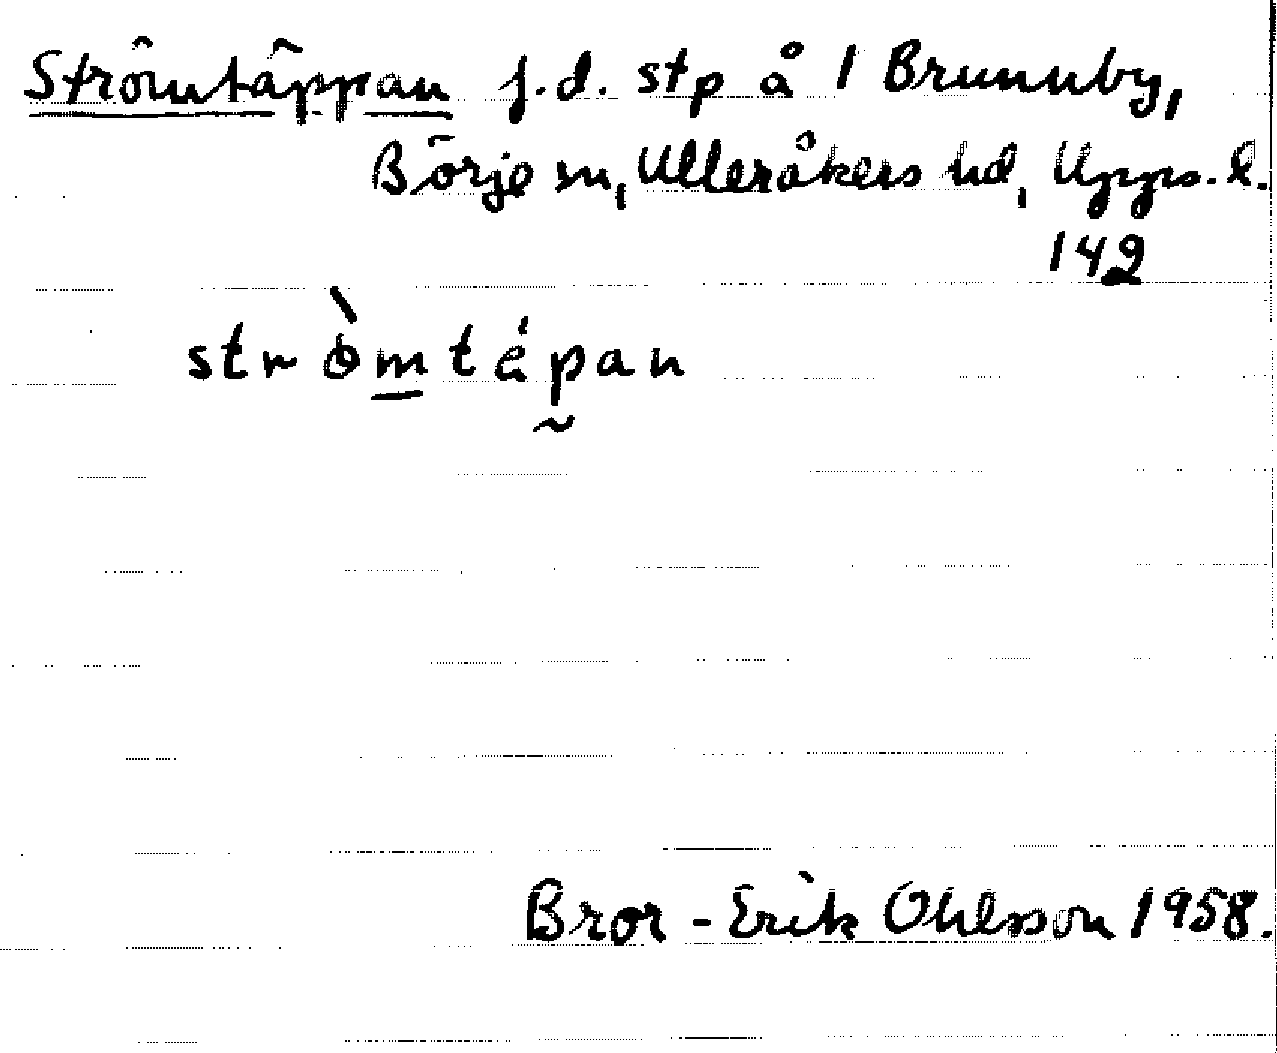 Strömtäppan f.d. stp å 1 Brunnby,
Börje sn, Ulleråkers hd, Upps. l.
142
strö̀mtépan
Bror-Erik Ohlsson 1958.